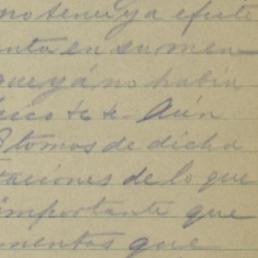 no tener ya efecti
enta en su men-
que yá no habia
cico &&. Aún
tomos de dicha
taciones de lo que
importante que
mentos que